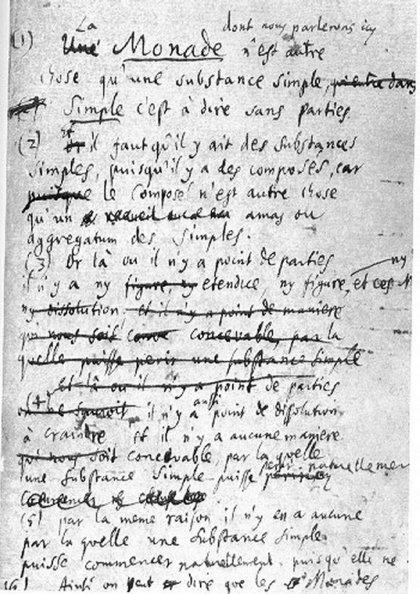 (1) La dont nous parlerons icy
Une Monade n'est autre
chose qu'une substance simple, qui entre dans
Simple c'est à dire sans parties
(2) et il faut qu'il y ait des substances
simples, puisqu'il y a des composés, car
puisque le composé n'est autre chose
qu'un amas ou
aggregatum des simples.
(3) Or là ou il n'y a point de parties ny
il n'y a ny figure, ny etendue, ny figure, et
ny dissolution et il n'y a point de maniere
qui nous soit concevable, par la
quelle puisse perir une substance simple
(4) Et là ou il n'y a point de parties
on ne sauroit il n'y a aussi point de dissolution
à craindre et il n'y a aucune maniere
qui nous soit concevable, par la quelle
une substance simple puisse perir naturellement
(5) par la meme raison il n'y en a aucune
par la quelle une substance simple
puisse commencer naturellement, puisqu'elle ne
(6) Ainsi on peut dire que les Monades